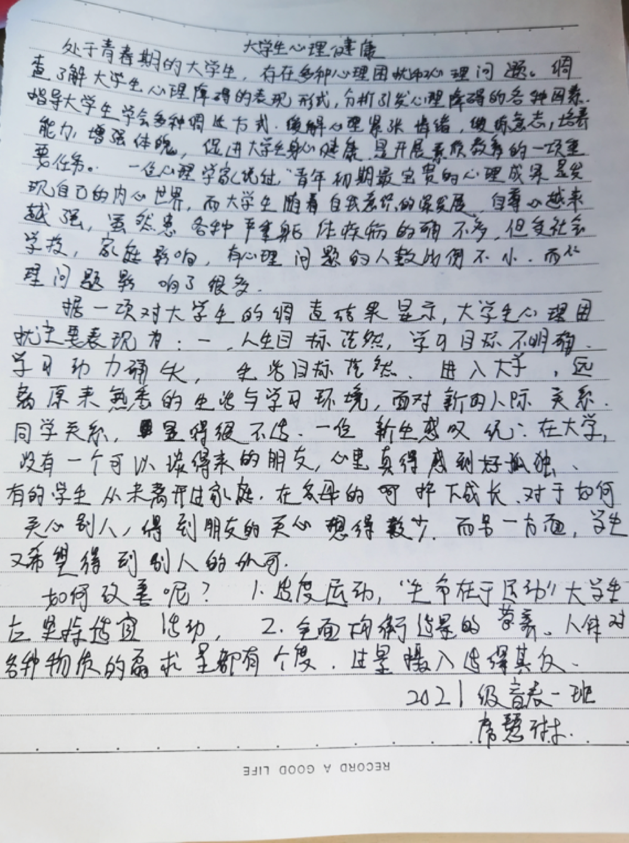 大学生心理健康
处于青春期的大学生，存在多种心理困扰和心理问题。调
查了解大学生心理障碍的表现形式，分析引发心理障碍的各种因素.
指导大学生学会多种调适方式.缓解心理紧张情绪，锻炼意志，培养
能力，增强体魄，促进大学生身心健康.是开展素质教育的一项重
要任务。一位心理学家说过，"青年初期最宝贵的心理成果是发
现自己的内心世界，而大学生随着自我意识的深发展，自尊心越来
越强，虽然患各种严重身体疾病的确不多，但受社会
学校，家庭影响，有心理问题的人数比例不小.而心
理问题影响了很多.
据一项对大学生的调查结果显示，大学生心理困
扰主要表现为：一，人生目标茫然，学习目标不明确.
学习动力缺失，生活目标茫然.进入大学，远
离原来熟悉的生活与学习环境，面对新的人际关系.
同学关系，显得很不适.一位新生感叹说：在大学，
没有一个可以谈得来的朋友，心里真得感到好孤独、
有的学生从未离开过家庭.在父母的呵护下成长.对于如何
关心别人，得到朋友的关心想得较少.而另一方面，学生
又希望得到别人的认可.
如何改善呢？1.适度运动，"生命在于运动"大学生
应坚持适宜活动，2.全面均衡适量的营养.人体对
各种物质的需求量都有个度.过量摄入适得其反.
2021级音表一班
席慧
RECORD A GOOD LIFE